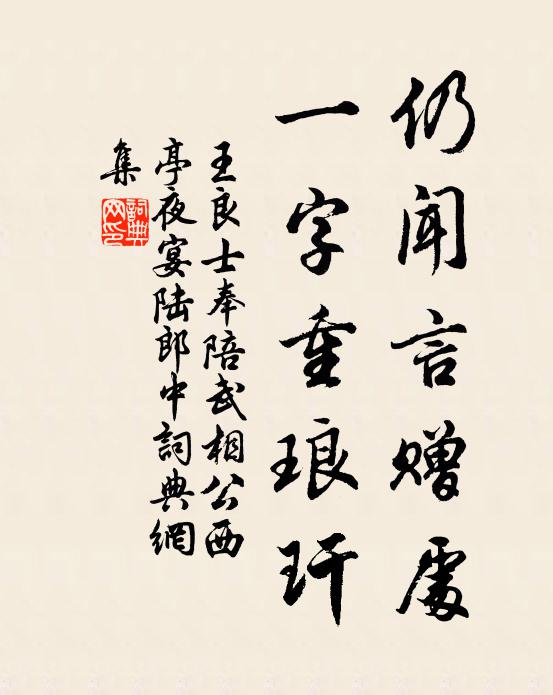 仍闻言赠处
一字重琅玕
王良士奉陪武相公西
亭夜宴陆郎中詞典網
集
詞典网印